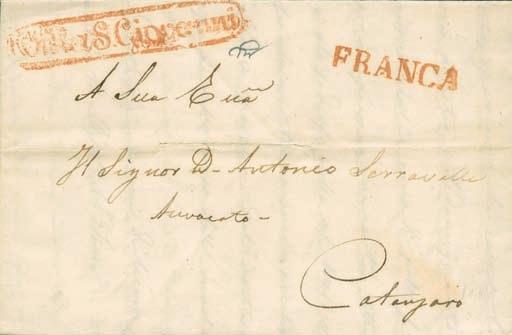 S. Giovanni
FRANCA
A Sua Ecca
Il Signor D- Antonio Serravalle
Avvocato-
Catanzaro